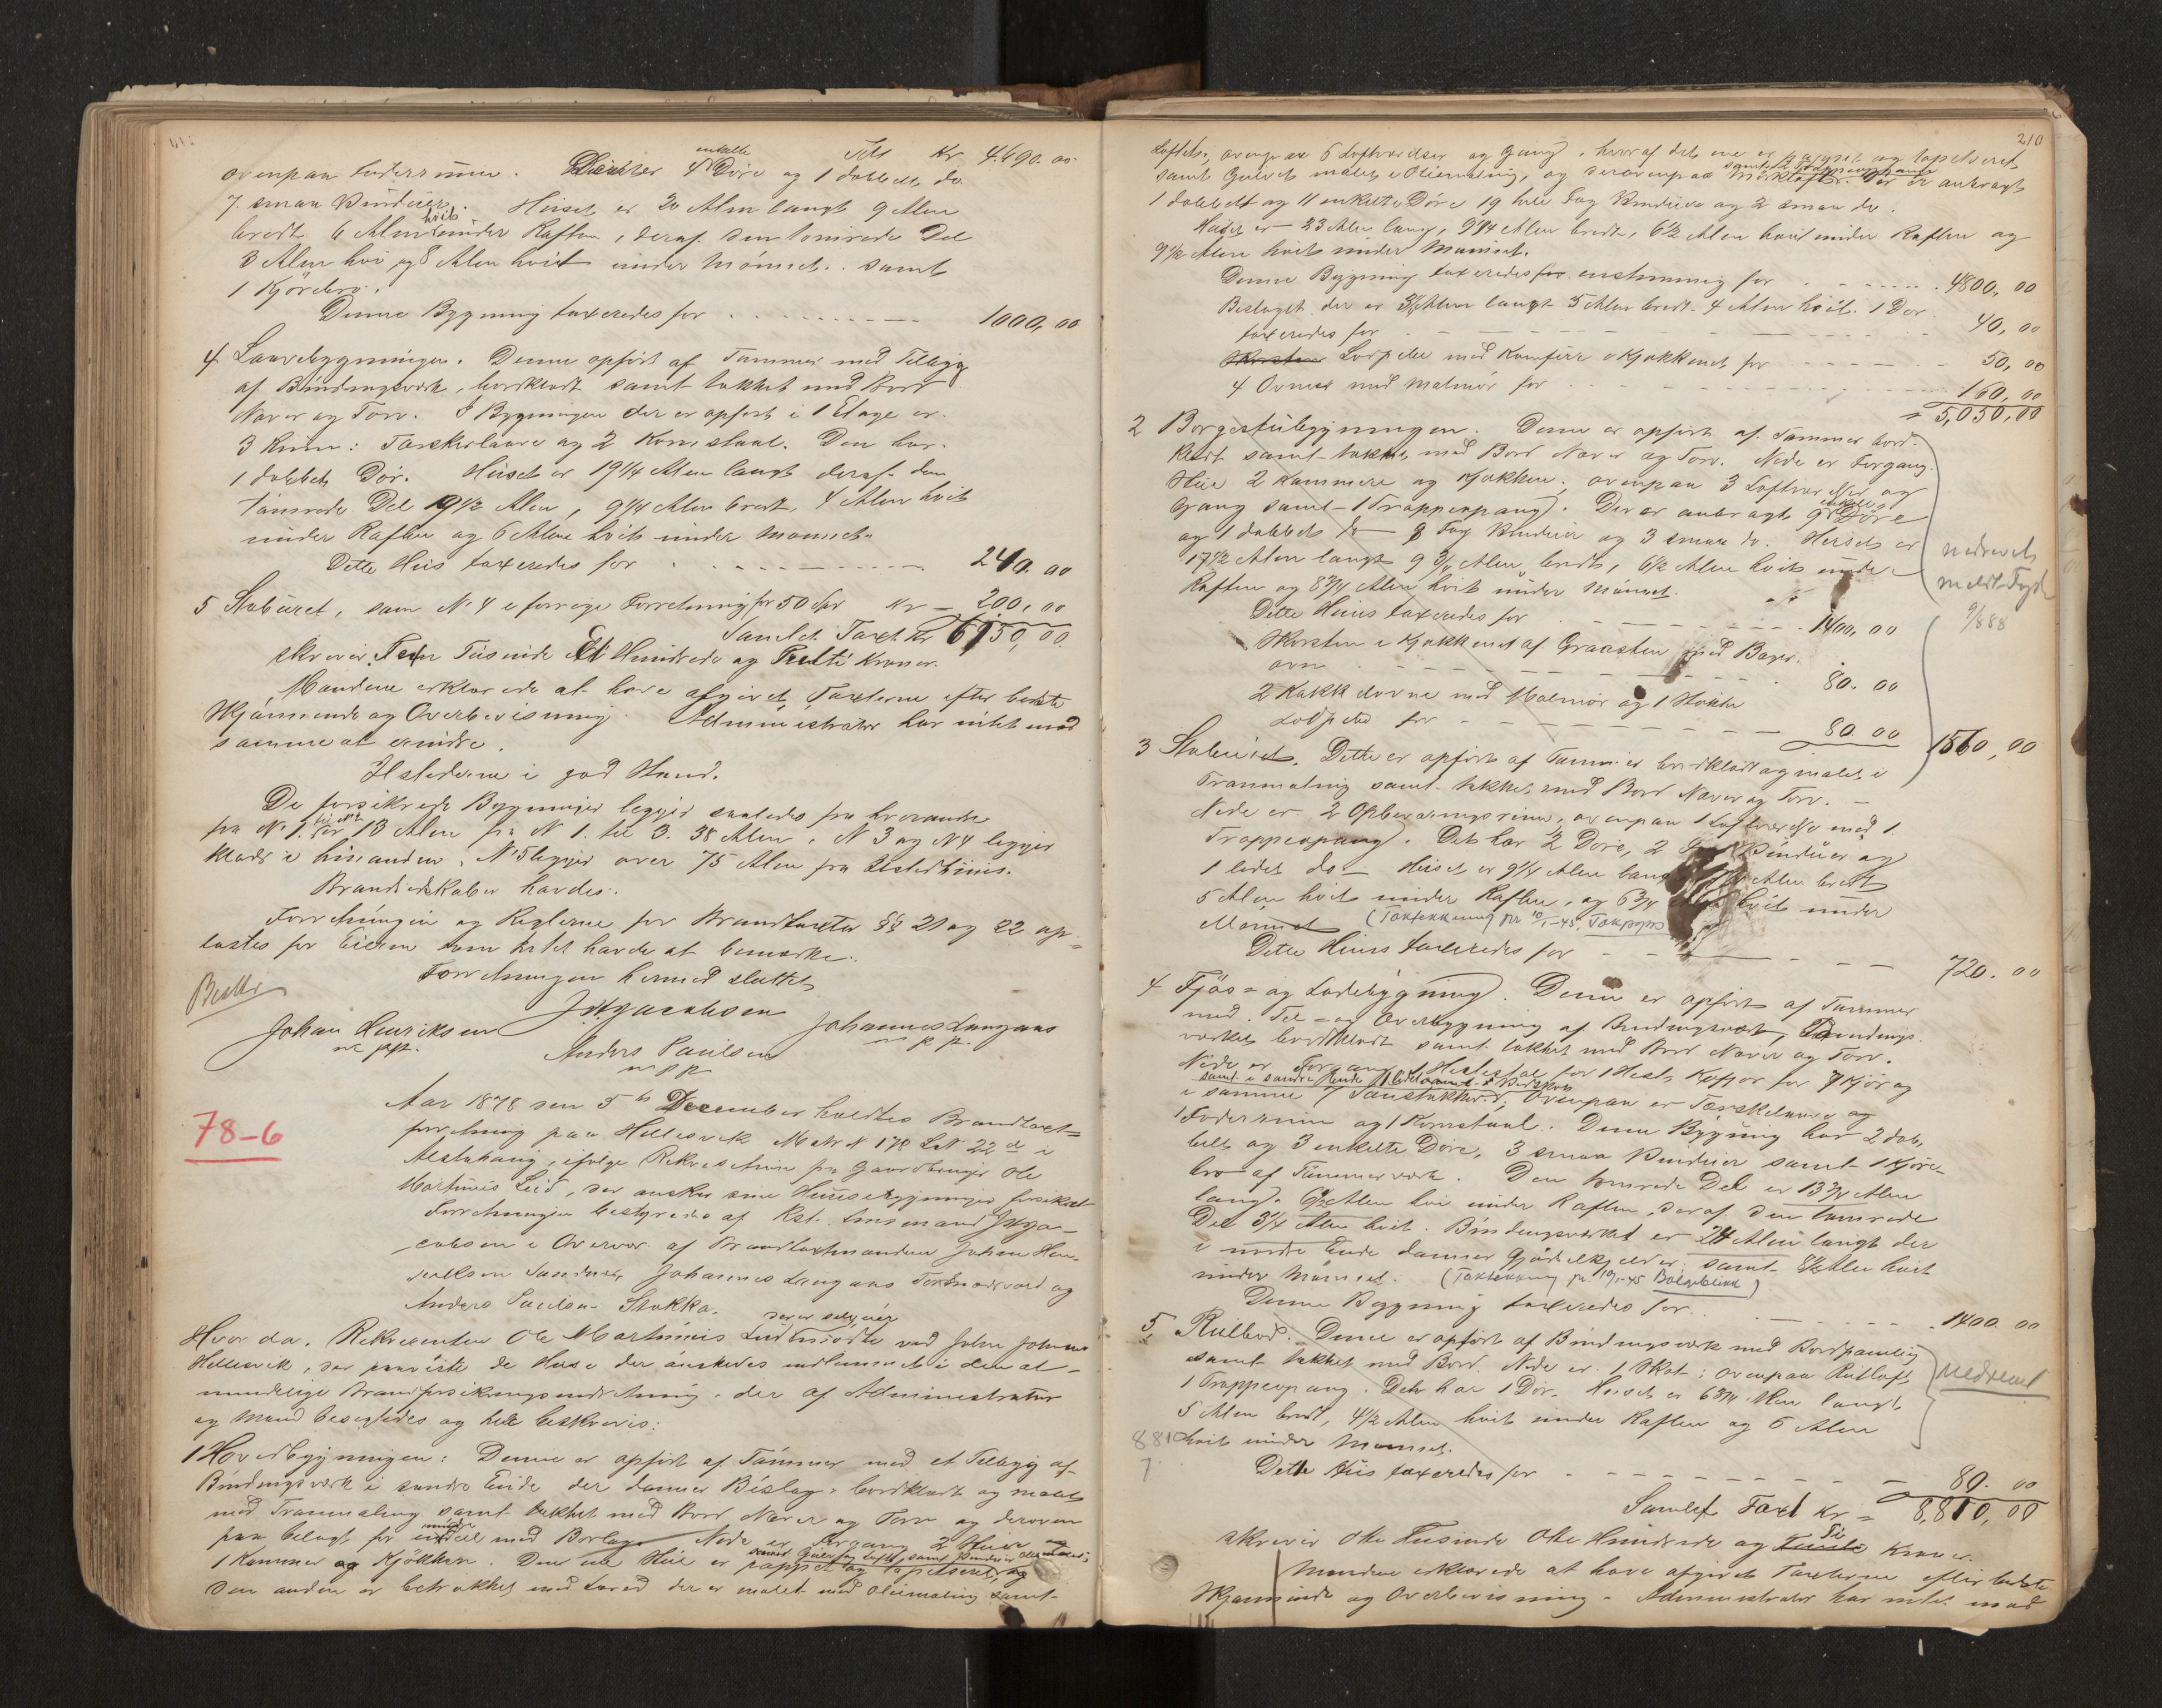 Tilf Kr 4.690.00
ovenpaa foderrum. 4 enkelte Döre og 1 dobbelt do
7 smaa Vinduer. Huset er 20 Alen langt 9 Alen
bredt 6 Alen hvit under Raften, deraf den tomrede Del
3 Alen hvi og 8 Alen hvit under Mönnet. samt
1 Kjörebro.
Denne Bygning taxeredes for 1000,00
4 Laavebygningen. Denne opfört af Tømmer med Tilbyg
af Bindingsværk, bordklædt samt tækket med Bord
Never og Torv. I Bygningen der er opfört i 1 Etage er
3 Rum: Tærskelaave og 2 Kornstaal. Den har
1 dobbelt Dör. Huset er 19 1/4 Alen langt deraf den
tömrede Del 9 1/2 Alen, 9 1/4 Alen bredt, 4 Alen hvit
under Raften og 6 Alen hvit under Mønnet.
Dette Hus taxeredes for 240.00
5 Stabüret, som No 4 i forrige Forretning for 50 Spd Kr 200,00
Samlet Taxt Kr 6130,00
skriver Tusinde Et Hundrede og Kroner.
Mændene erklærede at have afgivet Taxterne efter bedste
Skjönnende og Overbevisning. Administrator har intet mod
samme at erindre.
Ildstederne i god Stand.
De forsikrede Bygninger ligger saaledes fra hverandre
fra No 1. til No 2 13 Alen fra N 1. til 3. 38 Alen, N 3 og N 4 ligger
klods i hinanden, No 5 ligger over 75 Alen fra Ildstedhüus.
Brandredskaber havdes.
Forretningen og Reglerne for Brandtaxter §§ 21 og 22 op=
læstes for Eieren som intet havde at bemærke.
Forretningen hermed sluttet
Beskr
J. H. Jacobsen
Johan Henriksen Johannes Langaas
m p p. m p p.
Anders Paulsen
m p p
78-6
Aar 1878 den 5te December holdtes Brandtaxt=
forretning paa Hillesvik Matr N 178 LN 22 d i
ifölge Rekvisition fra Gaardbruger Ole
Martinus Lüd, der önsker sine Huusebygninger forsikret
Forretningen bestyredes af Kst. Lensmand J H Ja-
cobsen i Overvær af Brandtaxtmændene Johan Hen-
riksen Johannes Langaas og
Anders Paulsen Stokka.
Hvorda. Rekvirenten Ole Martinus Lüd mödte ved John Johnsen
Hillesvik, der paaviste de Huse der önskedes indlemmet i den al-
mindelige Brandforsikringsindretning, der af Administrator
og Mænd besigtedes og blev beskrevis:
1 Hovedbygningen: Denne er opfört af Tömmer med et Tilbyg af
Bindingsværk i søndre Ende der danner Bislag, bordklædt og malet
med Tranmaling samt tækket med Bord Never og Torv og deroven
paa belagt for mindre Deel med Nede er Forgang 2 Stüer og
1 Kammer og Kjökken. Den ene Stüe er pappet og tapetseret, og
den anden er betrækket med Lærred der er malet med Oliemaling samt
210
Loftet, ovenpaa 6 Loftværelser og Gang, hvoraf det ene er pappet og tapetseret
samt Gulvet malet i Oliemaling, og derovenpaa Mörkloft. Der er anbragt
1 dobbelt og 11 enkelte Döre 19 hele Fag Vinduer og 2 smaa do.
Huset er 23 Alen lang, 9 1/4 Alen bredt, 6 1/2 Alen hvit under Raften og
9 1/2 Alen hvit under Mønnet.
Denne Bygning taxeredes for enstemmig for 4800,00
Bislaget der er Alen langt 5 Alen bredt 4 Alen hvit. 1 Dör
taxeredes for 40,00
med Komfur i Kjøkkenet for 50,00
4 Ovner med Malmrör for 160,00
= 5,050,00
2 Borgestübygningen. Denne er opfört af Tømmer bord-
klædt samt tækket med Bord Never og Torv. Nede er Forgang
Stüe 2 Kammere og Kjøkken, ovenpaa 3 Loftværelser og
Gang samt 1 Trappeopgang. Der er anbragt 9 enkelte Döre
og 1 dobbelt do 8 Fag Vinduer og 3 smaa do. Huset er
17 1/2 Alen langt 9 3/4 Alen bredt, 6 1/2 Alen hvit under
Raften og 8 3/4 Alen hvit under Mönnet.
nedrevet
9/888
Dette Huus taxeredes for 1400,00
Skorsten i Kjøkkenet af Graasten med Bager-
ovn 80.00
2 Kakkelovne med Malmrör og 1 Stökke
for 80.00
1560,00
3 Stabüret. Dette er opfört af Tømmer bordklædt og malet i
Tranmaling samt tækket med Bord Never og Torv.
Nede er 2 Opbevaringsrum, ovenpaa 1 Loftværelse med 1
Trappeopgang. Det har 2 Döre, 2 Vinduer og
1 lidet do. Huset er 9 1/4 Alen langt Alen bredt
5 Alen hvit under Raften, og 6 3/4 Alen hvit under
Mönnet (Taktekking pr 10/1-45 Takpapp)
Dette Huus taxeredes for 720.00
4 Fjös= og Ladebygning. Denne er opfört af Tømmer
med Til= og Overbygning af Bindingsværk, Bindings
værket bordklædt samt tækket med Bord Never og Torv.
Nede er Forgang 1 Hestestal for 1 Hest, Kofjos for 7 Kjör og
i samme 7 Ovenpaa er Tærskelaave og
1 Foderrum og 1 Kornstaal. Denne Bygning har 2 dob-
belt og 3 enkelte Döre, 3 smaa Vinduer samt 1 Kjöre-
bro af Tømmerværk. Den tømrede Del er 13 3/4 Alen
lang, 6 1/2 Alen hvi under Raften, deraf den tømrede
Del 3 1/4 Alen hvit. Bindingsværket er 24 Alen langt der
i nordre Ende danner Gjödselkjelder samt 8 1/2 Alen hvit
under Mönnet. (Taktekking pr 10/1-45 Bølgeblikk)
Denne Bygning taxeredes for 1400.00
5 Rulbod. Denne er opfört af Bindingsværk med Bordpaneling
samt tækket med Bord. Nede er 1 Skot: ovenpaa Rulloft
1 Trappeopgang. Det har 1 Dör. Huset er 6 3/4 Alen langt
nedrevet
5 Alen bredt, 4 1/2 Alen hvit under Raften og 6 Alen
8810 hvit under Mönnet.
7
Dette Hüs taxeredes for 80.00
Samlet Taxt Kr = 8,810,00
skriver Otte Tusinde Otte Hundrede og Ti Kroner.
Mændene erklærede at have afgivet Taxterne efter bedste
Skjønnende og Overbevisning. Administrator har intet mod